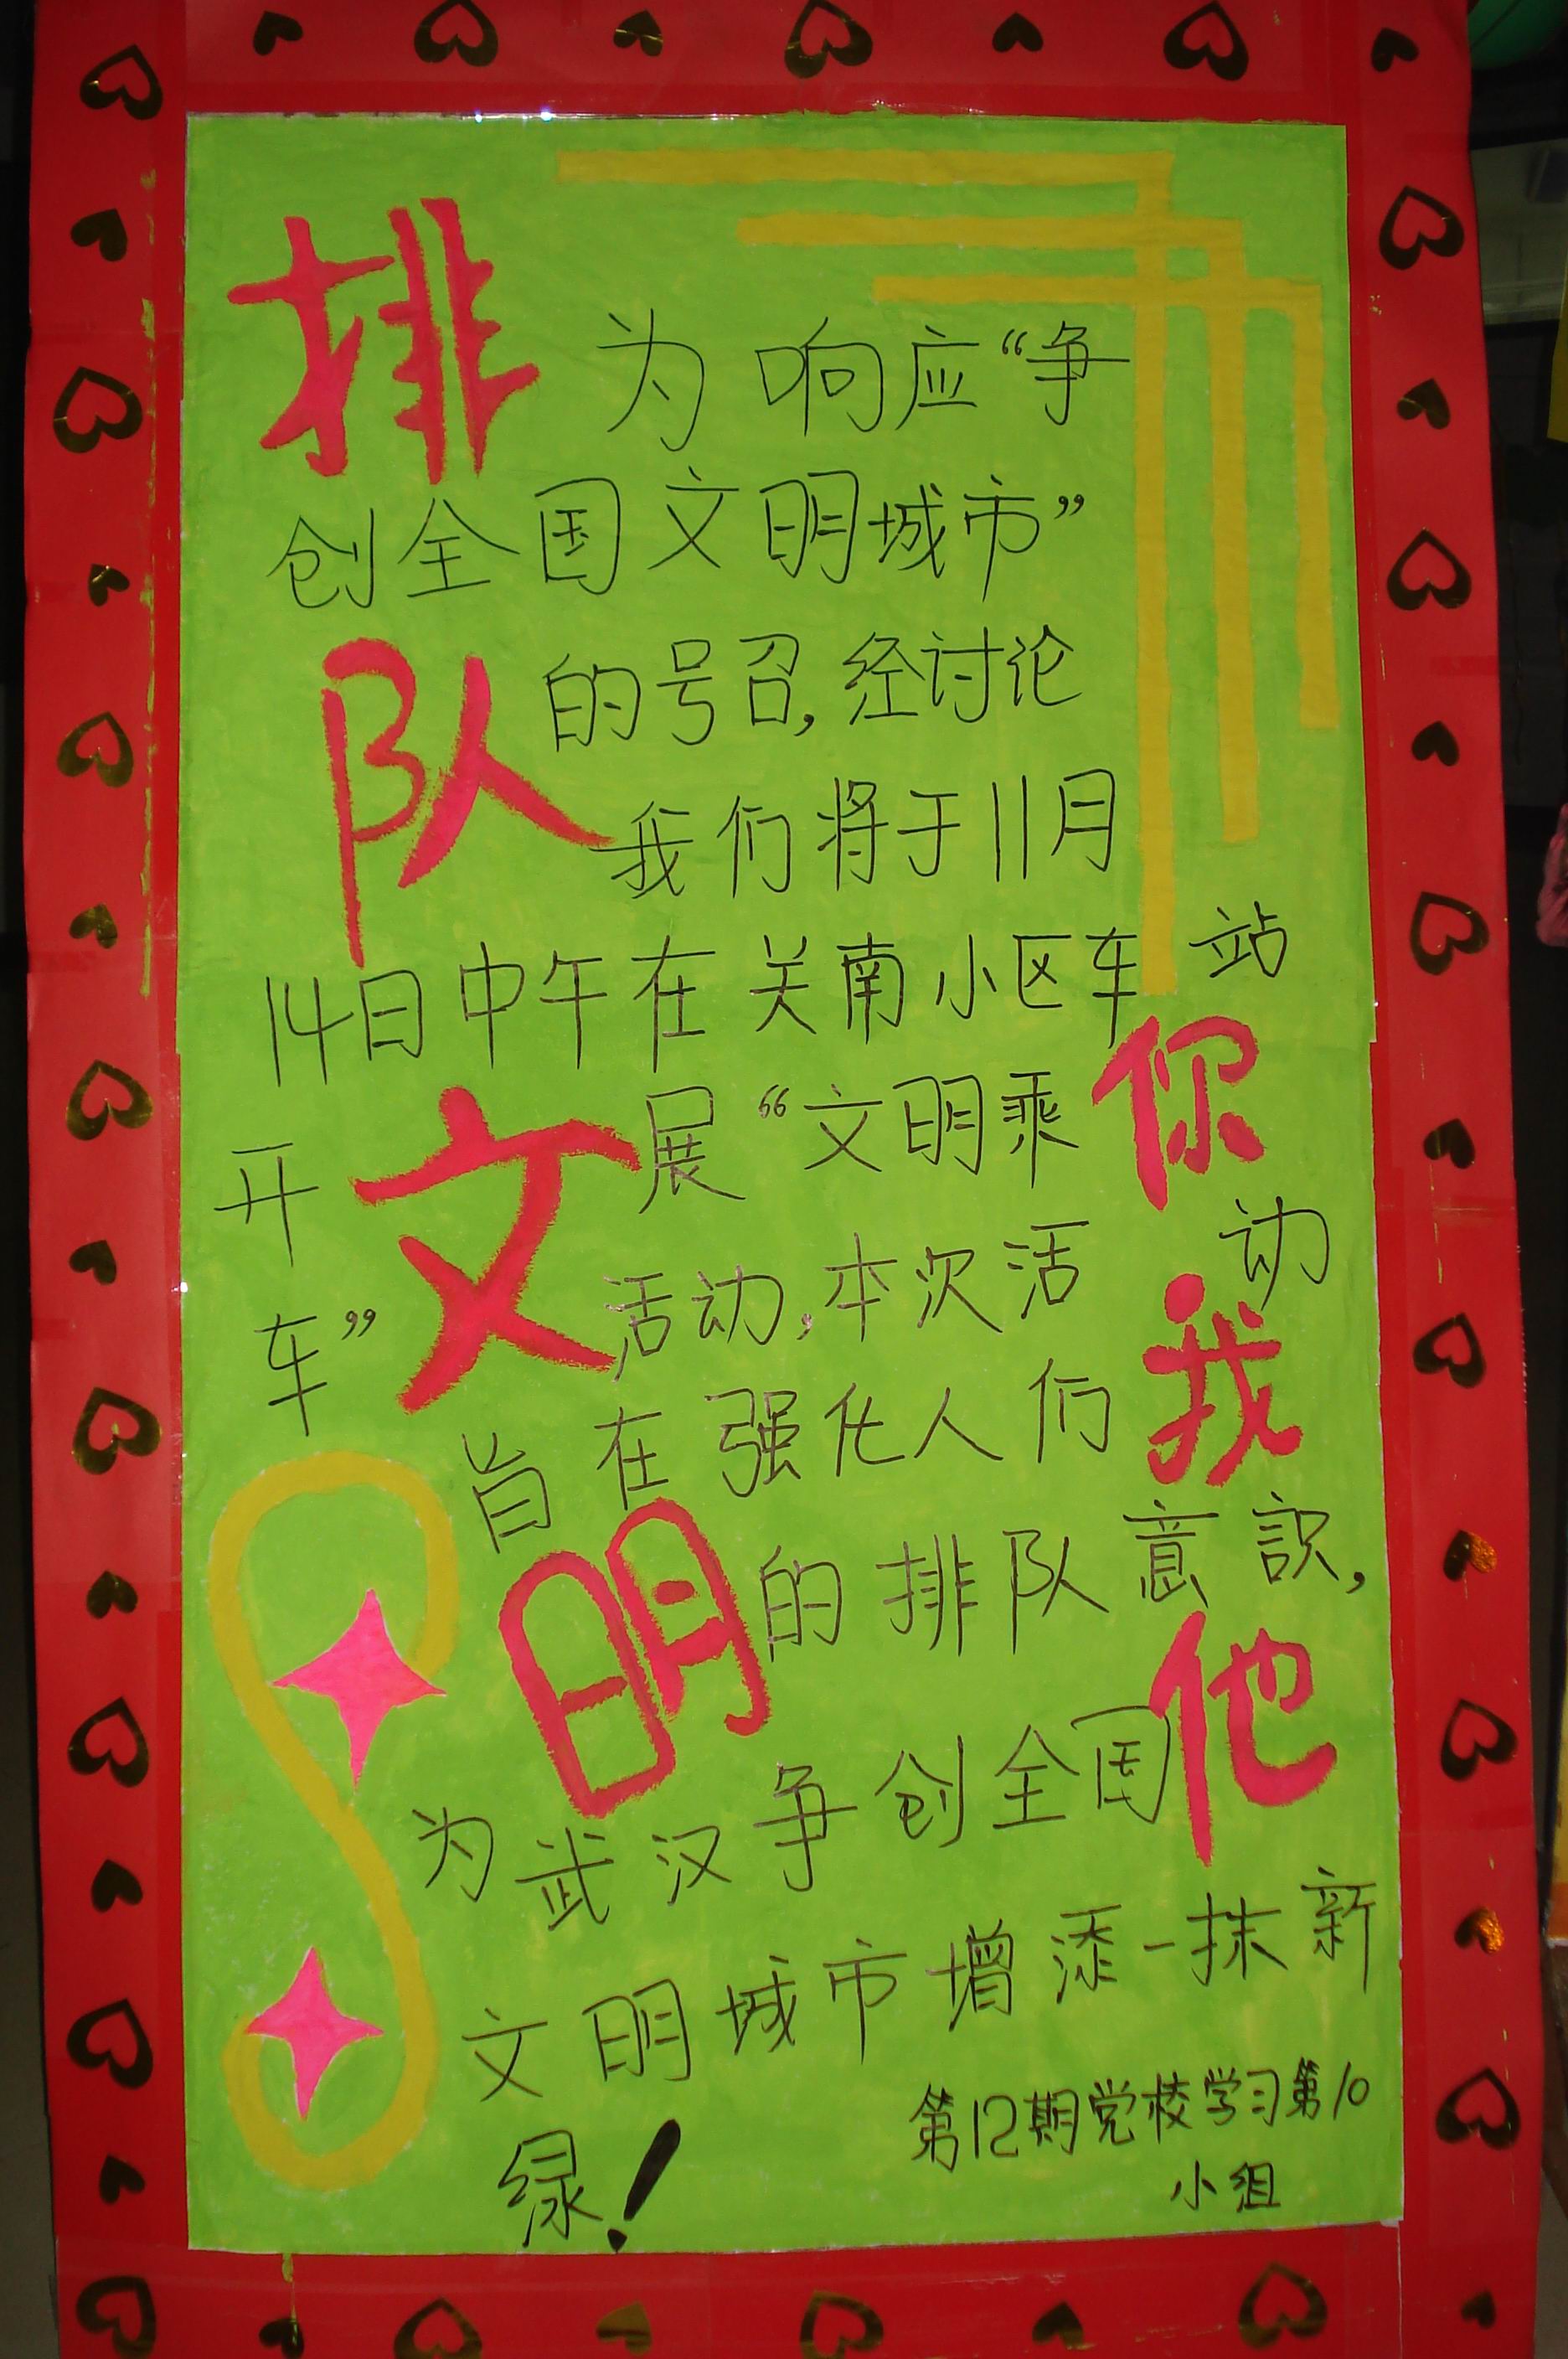 排队文明
你我他
为响应“争
创全国文明城市”
的号召,经讨论
我们将于11月
14日中午在关南小区车站
开展“文明乘
车”活动,本次活动
旨在强化人们
的排队意识,
为武汉争创全国
文明城市增添一抹新
绿!
第12期党校学习第10
小组